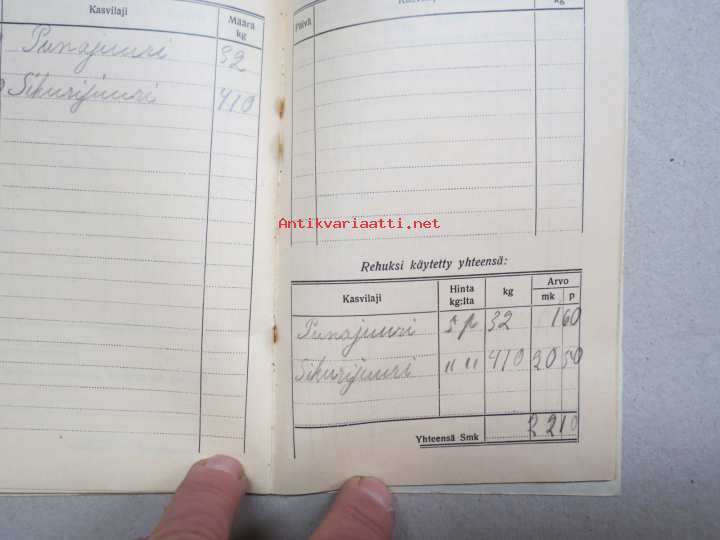 Kasvilaji Määrä kg
Punajuuri 32
Sikurijuuri 410
Päivä kg
Antikvariaatti.net
Rehuksi käytetty yhteensä:
Kasvilaji Hinta kg:lta kg Arvo mk p
Punajuuri 5 p 32 1 60
Sikurijuuri " " 410 20 50
Yhteensä Smk 22 10